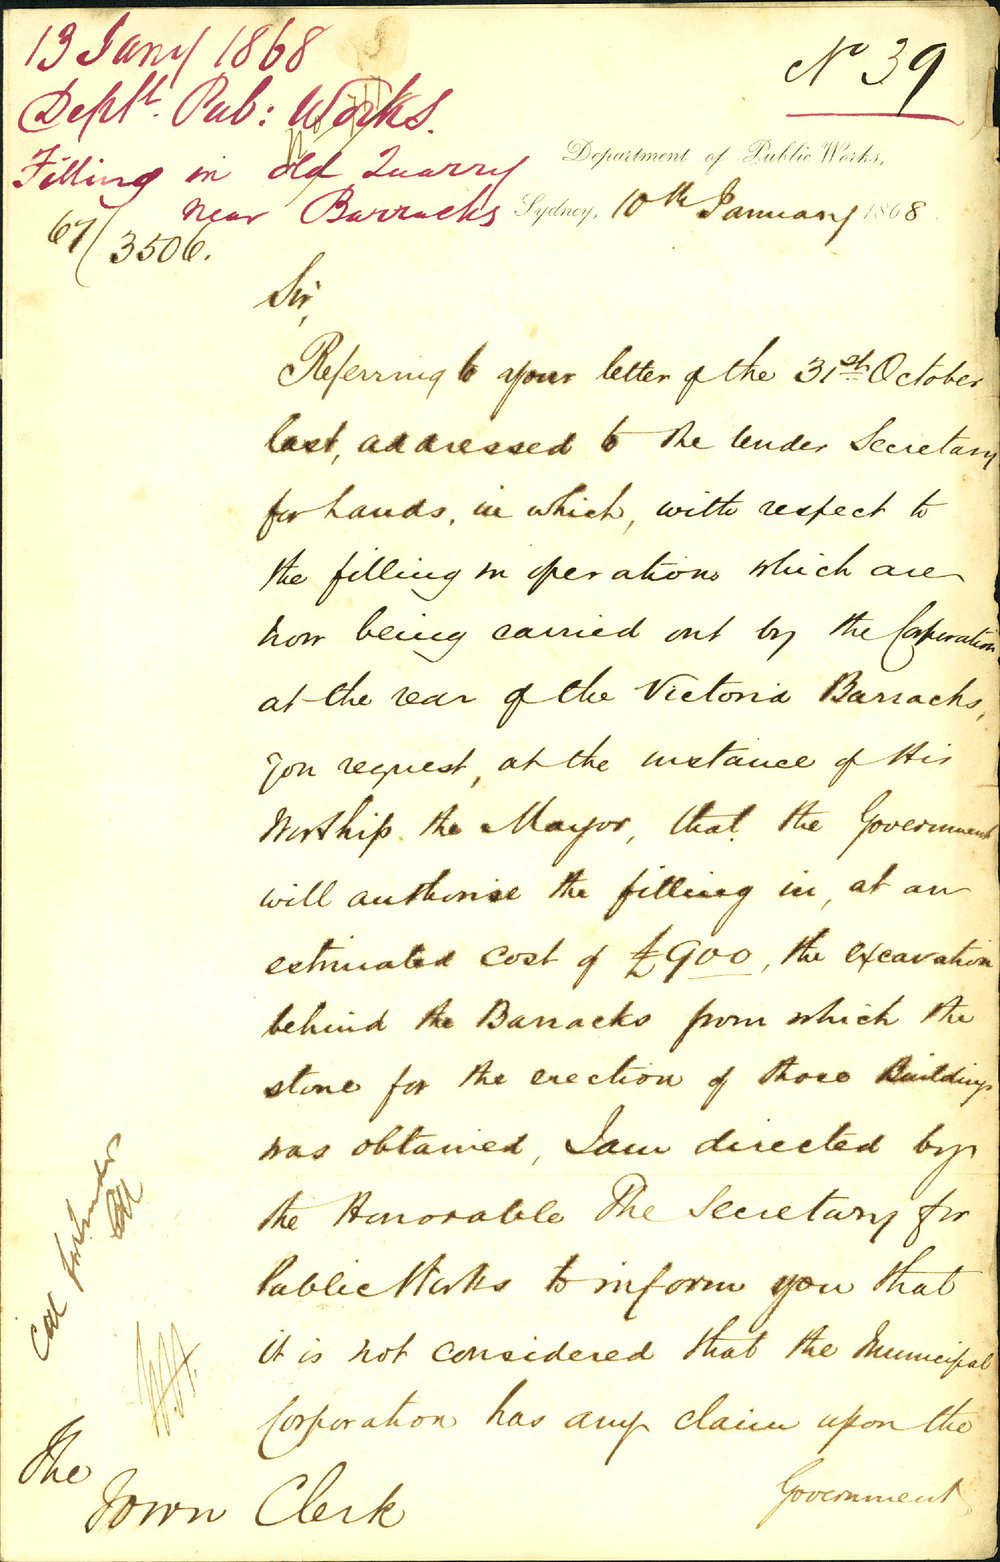 13 Jany 1868
Deptt. Pub: Works.
Filling in old Quarry
near Barracks
67/3506.
No 39
Department of Public Works,
Sydney, 10th January 1868
Sir,
Referring to your letter of the 31st October
last, addressed to the Under Secretary
for Lands, in which, with respect to
the filling in operations which are
now being carried out by the Corporation
at the rear of the Victoria Barracks,
you request, at the instance of His
Worship the Mayor, that the Government
will authorise the filling in, at an
estimated cost of £900, the excavation
behind the Barracks from which the
stone for the erection of those Buildings
was obtained, I am directed by
the Honorable The Secretary for
Public Works to inform you that
it is not considered that the Municipal
Corporation has any claim upon the
Government
The
Town Clerk